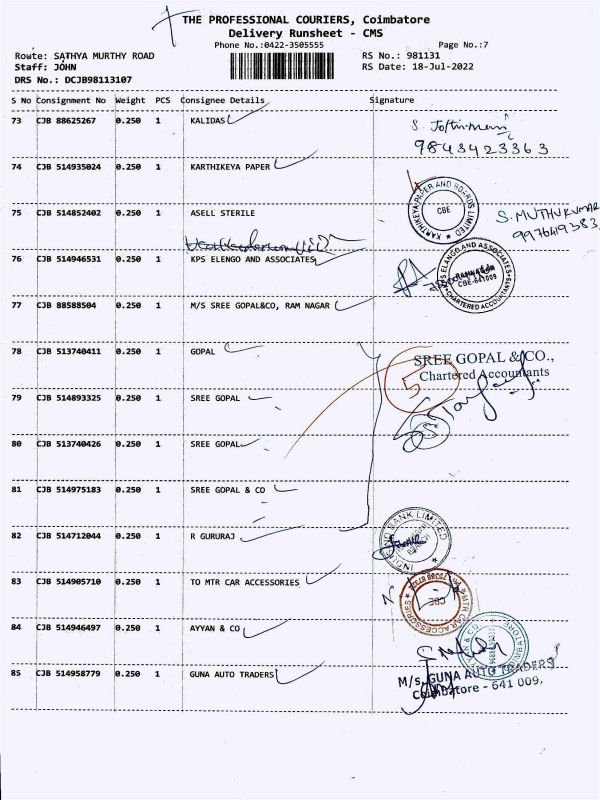 THE PROFESSIONAL COURIERS, Coimbatore
Delivery Runsheet - CMS
Phone No.:0422-3505555 Page No.:7
Route: SATHYA MURTHY ROAD RS No.: 981131
Staff: JOHN RS Date: 18-Jul-2022
DRS No.: DCJB98113107
S No Consignment No Weight PCS Consignee Details Signature
73 CJB 88625267 0.250 1 KALIDAS
9843423363
74 CJB 514935024 0.250 1 KARTHIKEYA PAPER
KARTHIKEYA PAPER AND BOARDS LIMITED
CBE
75 CJB 514852402 0.250 1 ASELL STERILE
S. MUTHUKUMAR
76 CJB 514946531 0.250 1 KPS ELENGO AND ASSOCIATES
CBE-641009
CHARTERED ACCOUNTANTS
77 CJB 88588504 0.250 1 M/S SREE GOPAL&CO, RAM NAGAR
78 CJB 513740411 0.250 1 GOPAL
SREE GOPAL & CO.,
Chartered Accountants
5
79 CJB 514893325 0.250 1 SREE GOPAL
80 CJB 513740426 0.250 1 SREE GOPAL
81 CJB 514975183 0.250 1 SREE GOPAL & CO
82 CJB 514712044 0.250 1 R GURURAJ
BANK LIMITED
83 CJB 514905710 0.250 1 TO MTR CAR ACCESSORIES
MTR CAR ACCESSORIES
CBE
84 CJB 514946497 0.250 1 AYYAN & CO
85 CJB 514958779 0.250 1 GUNA AUTO TRADERS
M/s. GUNA AUTO TRADERS
Coimbatore - 641 009.